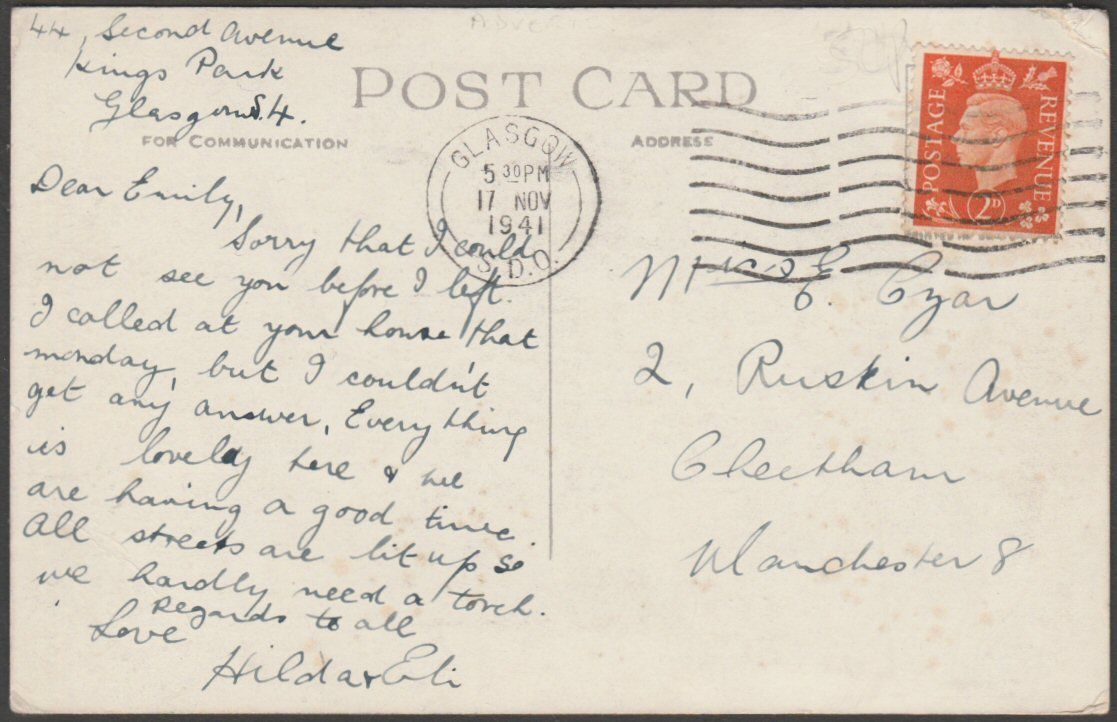 44, Second Avenue
Kings Park
Glasgow S.4.
POST CARD
FOR COMMUNICATION
ADDRESS
GLASGOW
5 30PM
17 NOV
1941
S.D.O.
POSTAGE
REVENUE
2D
Dear Emily,
Sorry that I could
not see you before I left.
I called at your house that
monday, but I couldn't
get any answer, Everything
is lovely here & we
are having a good time.
All streets are lit up so
we hardly need a torch.
Regards to all
Love
Hilda & Eli
Mrs E. Czar
2, Ruskin Avenue
Cheetham
Manchester 8